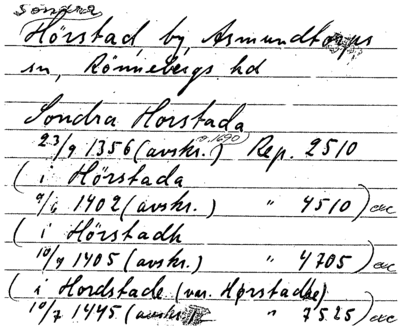 Södra
Hörstad, by, Asmundtorps
sn, Rönnebergs hd
Sondra Horstada
23/9 1356 (avskr. o. 1690) Rep. 2510
( i Hörstada
9/6 1402 (avskr.) " 4510) exc
( i Hörstadh
10/9 1405 (avskr.) " 4705) exc
( i Hordstade (var. Hørstadhe)
10/7 1445 (avskr. " 7525) exc